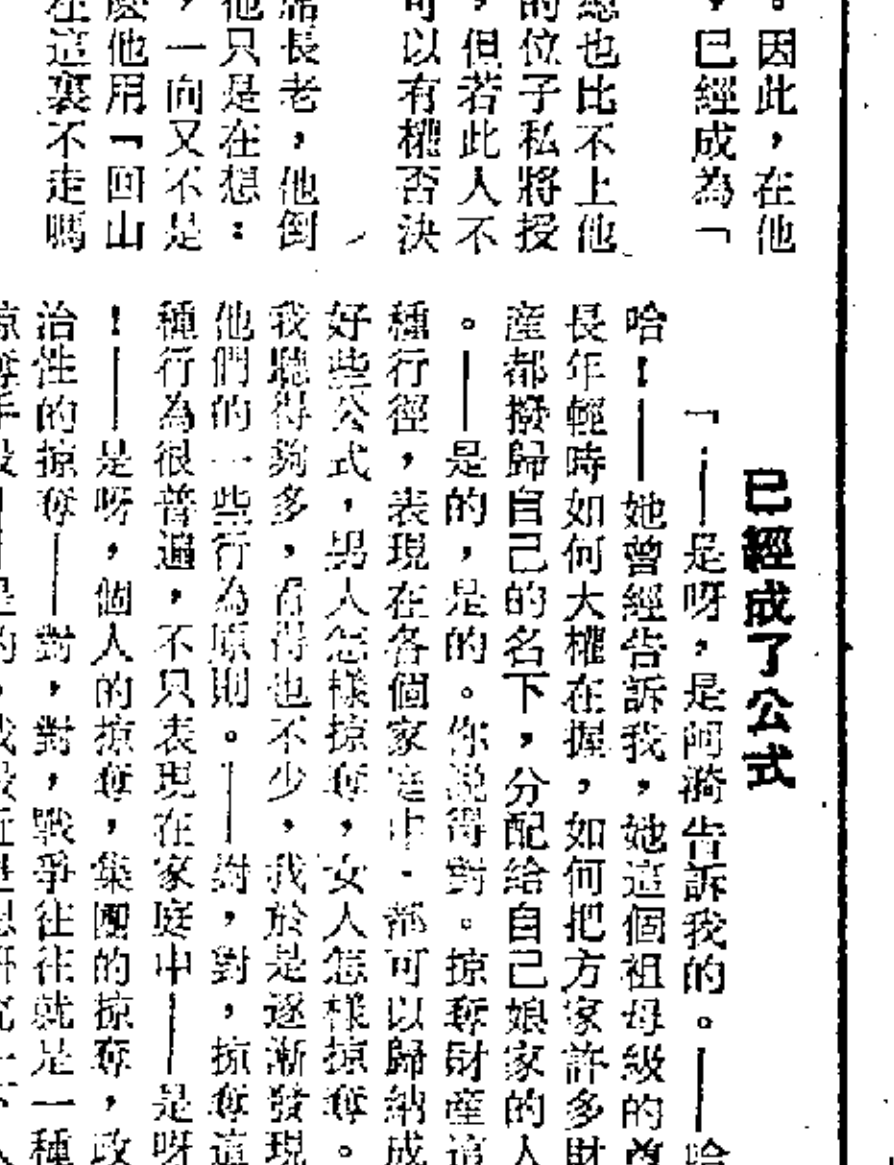 。因此，在他
，已經成為「
總也比不上他
的位子私將授
，但若此人不
可以有權否決
席長老，他倒
他只是在想：
，一向又不是
麼他用「回山
在這裏不走嗎
已經成了公式
「——是呀，是阿漪告訴我的。——哈
哈！——她曾經告訴我，她這個祖母級的尊
長年輕時如何大權在握，如何把方家許多財
產都撥歸自己的名下，分配給自己娘家的人
。——是的，是的。你說得對。掠奪財產這
種行徑，表現在各個家庭中，都可以歸納成
好些公式，男人怎樣掠奪，女人怎樣掠奪。
我聽得夠多，看得也不少，我於是逐漸發現
他們的一些行為原則。——對，對，掠奪這
種行為很普遍，不只表現在家庭中——是呀
！——是呀，個人的掠奪，集團的掠奪，政
治性的掠奪——對，對，戰爭往往就是一種
掠奪手段